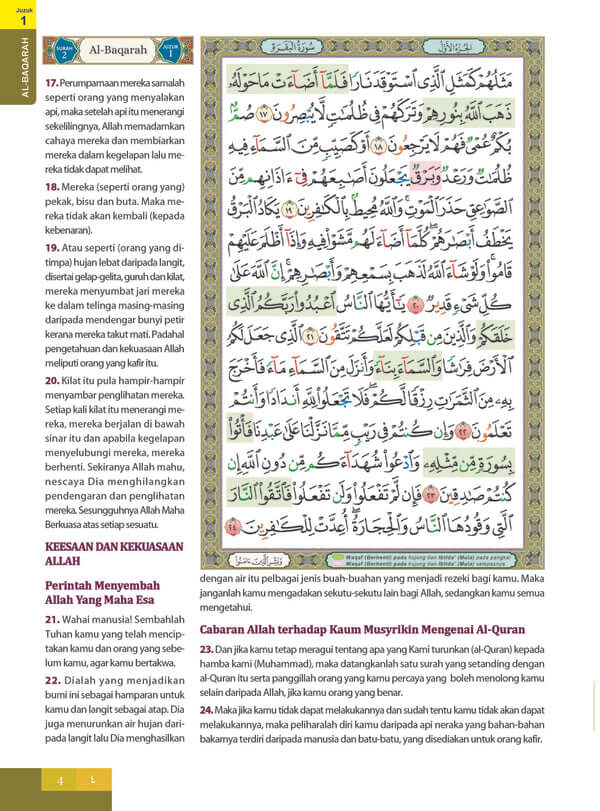 Juzuk
1
AL-BAQARAH
SURAH
2
Al-Baqarah
JUZUK
1
17. Perumpamaan mereka samalah
seperti orang yang menyalakan
api, maka setelah api itu menerangi
sekelilingnya, Allah memadamkan
cahaya mereka dan membiarkan
mereka dalam kegelapan lalu me-
reka tidak dapat melihat.
18. Mereka (seperti orang yang)
pekak, bisu dan buta. Maka me-
reka tidak akan kembali (kepada
kebenaran).
19. Atau seperti (orang yang di-
timpa) hujan lebat daripada langit,
disertai gelap-gelita, guruh dan kilat,
mereka menyumbat jari mereka
ke dalam telinga masing-masing
daripada mendengar bunyi petir
kerana mereka takut mati. Padahal
pengetahuan dan kekuasaan Allah
meliputi orang yang kafir itu.
20. Kilat itu pula hampir-hampir
menyambar penglihatan mereka.
Setiap kali kilat itu menerangi me-
reka, mereka berjalan di bawah
sinar itu dan apabila kegelapan
menyelubungi mereka, mereka
berhenti. Sekiranya Allah mahu,
nescaya Dia menghilangkan
pendengaran dan penglihatan
mereka. Sesungguhnya Allah Maha
Berkuasa atas setiap sesuatu.
KEESAAN DAN KEKUASAAN
ALLAH
Perintah Menyembah
Allah Yang Maha Esa
21. Wahai manusia! Sembahlah
Tuhan kamu yang telah mencip-
takan kamu dan orang yang sebe-
lum kamu, agar kamu bertakwa.
22. Dialah yang menjadikan
bumi ini sebagai hamparan untuk
kamu dan langit sebagai atap. Dia
juga menurunkan air hujan dari-
pada langit lalu Dia menghasilkan
سُورَةُ البَقَرَةِ
الجُزْءُ الأَوَّلُ
مَثَلُهُمْ كَمَثَلِ ٱلَّذِى ٱسْتَوْقَدَ نَارًا فَلَمَّآ أَضَآءَتْ مَا حَوْلَهُۥ
ذَهَبَ ٱللَّهُ بِنُورِهِمْ وَتَرَكَهُمْ فِى ظُلُمَٰتٍ لَّا يُبْصِرُونَ ١٧ صُمٌّۢ
بُكْمٌ عُمْىٌ فَهُمْ لَا يَرْجِعُونَ ١٨ أَوْ كَصَيِّبٍ مِّنَ ٱلسَّمَآءِ فِيهِ
ظُلُمَٰتٌ وَرَعْدٌ وَبَرْقٌ يَجْعَلُونَ أَصَٰبِعَهُمْ فِىٓ ءَاذَانِهِم مِّنَ
ٱلصَّوَٰعِقِ حَذَرَ ٱلْمَوْتِ ۚ وَٱللَّهُ مُحِيطٌۢ بِٱلْكَٰفِرِينَ ١٩ يَكَادُ ٱلْبَرْقُ
يَخْطَفُ أَبْصَٰرَهُمْ ۖ كُلَّمَآ أَضَآءَ لَهُم مَّشَوْا۟ فِيهِ وَإِذَآ أَظْلَمَ عَلَيْهِمْ
قَامُوا۟ ۚ وَلَوْ شَآءَ ٱللَّهُ لَذَهَبَ بِسَمْعِهِمْ وَأَبْصَٰرِهِمْ ۚ إِنَّ ٱللَّهَ عَلَىٰ
كُلِّ شَىْءٍ قَدِيرٌ ٢٠ يَٰٓأَيُّهَا ٱلنَّاسُ ٱعْبُدُوا۟ رَبَّكُمُ ٱلَّذِى
خَلَقَكُمْ وَٱلَّذِينَ مِن قَبْلِكُمْ لَعَلَّكُمْ تَتَّقُونَ ٢١ ٱلَّذِى جَعَلَ لَكُمُ
ٱلْأَرْضَ فِرَٰشًا وَٱلسَّمَآءَ بِنَآءً وَأَنزَلَ مِنَ ٱلسَّمَآءِ مَآءً فَأَخْرَجَ
بِهِۦ مِنَ ٱلثَّمَرَٰتِ رِزْقًا لَّكُمْ ۖ فَلَا تَجْعَلُوا۟ لِلَّهِ أَندَادًا وَأَنتُمْ
تَعْلَمُونَ ٢٢ وَإِن كُنتُمْ فِى رَيْبٍ مِّمَّا نَزَّلْنَا عَلَىٰ عَبْدِنَا فَأْتُوا۟
بِسُورَةٍ مِّن مِّثْلِهِۦ وَٱدْعُوا۟ شُهَدَآءَكُم مِّن دُونِ ٱللَّهِ إِن
كُنتُمْ صَٰدِقِينَ ٢٣ فَإِن لَّمْ تَفْعَلُوا۟ وَلَن تَفْعَلُوا۟ فَٱتَّقُوا۟ ٱلنَّارَ
ٱلَّتِى وَقُودُهَا ٱلنَّاسُ وَٱلْحِجَارَةُ ۖ أُعِدَّتْ لِلْكَٰفِرِينَ ٢٤
Waqaf (Berhenti) pada hujung dan Ibtida' (Mula) pada pangkal
Waqaf (Berhenti) pada hujung dan Ibtida' (Mula) sempurna
dengan air itu pelbagai jenis buah-buahan yang menjadi rezeki bagi kamu. Maka
janganlah kamu mengadakan sekutu-sekutu lain bagi Allah, sedangkan kamu semua
mengetahui.
Cabaran Allah terhadap Kaum Musyrikin Mengenai Al-Quran
23. Dan jika kamu tetap meragui tentang apa yang Kami turunkan (al-Quran) kepada
hamba kami (Muhammad), maka datangkanlah satu surah yang setanding dengan
al-Quran itu serta panggillah orang yang kamu percaya yang boleh menolong kamu
selain daripada Allah, jika kamu orang yang benar.
24. Maka jika kamu tidak dapat melakukannya dan sudah tentu kamu tidak akan dapat
melakukannya, maka peliharalah diri kamu daripada api neraka yang bahan-bahan
bakarnya terdiri daripada manusia dan batu-batu, yang disediakan untuk orang kafir.
4
٤